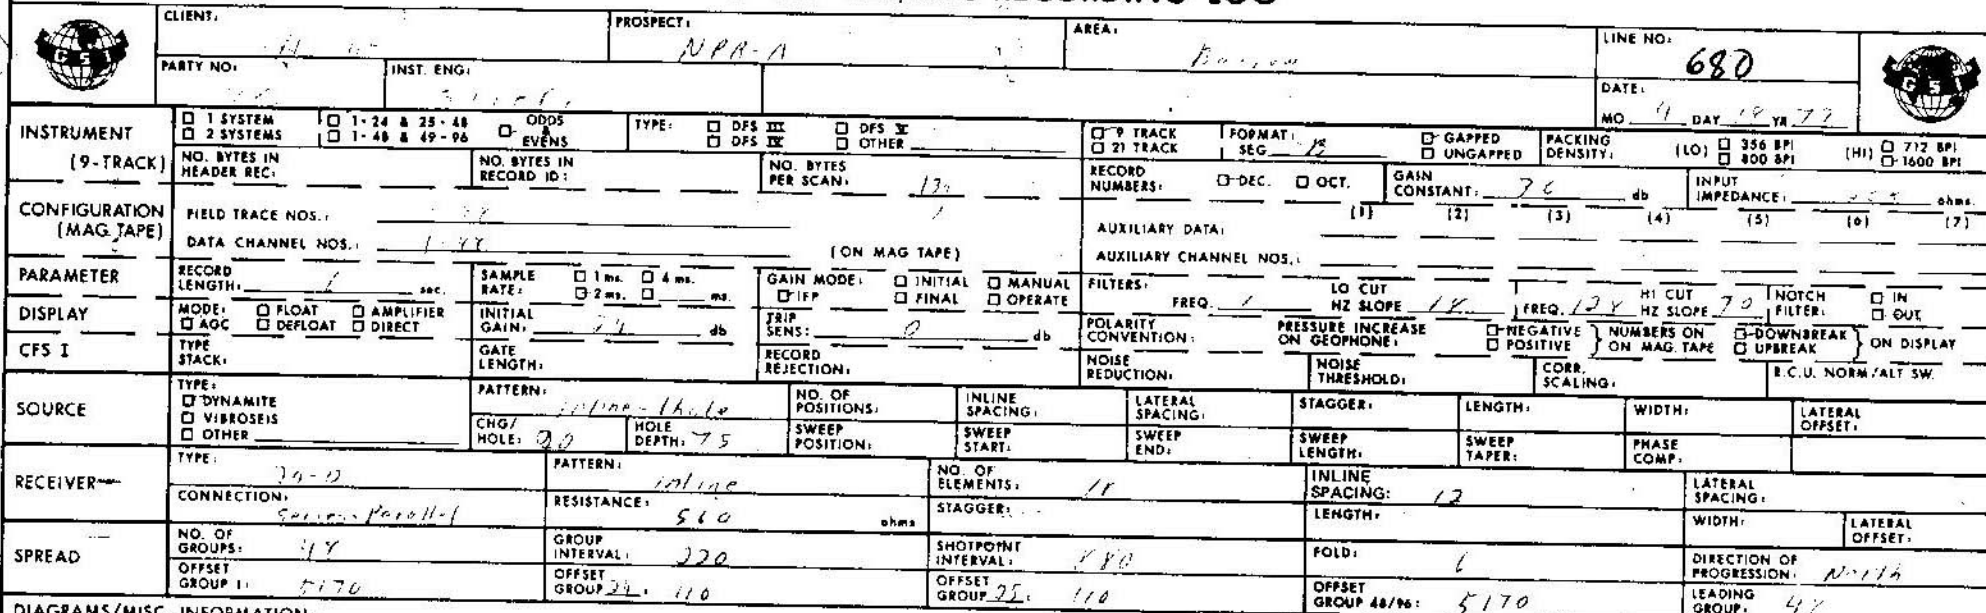 CLIENT:
PROSPECT: NPR-A
AREA: Barrow
LINE NO: 680
GSI
GSI
PARTY NO:
INST. ENG:
DATE:
MO DAY YR 77
INSTRUMENT (9-TRACK)
☐ 1 SYSTEM ☐ 1-24 & 25-48 ☐ ODDS & EVENS
☐ 2 SYSTEMS ☐ 1-48 & 49-96
TYPE: ☐ DFS III ☐ DFS V
☐ DFS IV ☐ OTHER
☐ 9 TRACK
☐ 21 TRACK
FORMAT: SEG B
☐ GAPPED
☐ UNGAPPED
PACKING DENSITY: (LO) ☐ 356 BPI ☐ 800 BPI (HI) ☐ 712 BPI ☐ 1600 BPI
NO. BYTES IN HEADER REC:
NO. BYTES IN RECORD ID:
NO. BYTES PER SCAN:
RECORD NUMBERS: ☐ DEC. ☐ OCT.
GAIN CONSTANT: db
INPUT IMPEDANCE: ohms
CONFIGURATION (MAG. TAPE)
FIELD TRACE NOS.:
AUXILIARY DATA: (1) (2) (3) (4) (5) (6) (7)
DATA CHANNEL NOS.: (ON MAG TAPE)
AUXILIARY CHANNEL NOS.:
PARAMETER
RECORD LENGTH: sec.
SAMPLE RATE: ☐ 1 ms. ☐ 4 ms. ☐ 2 ms. ☐ ms.
GAIN MODE: ☐ INITIAL ☐ MANUAL ☐ IFP ☐ FINAL ☐ OPERATE
FILTERS: FREQ. LO CUT HZ SLOPE 18 FREQ. 128 HI CUT HZ SLOPE 70 NOTCH FILTER: ☐ IN ☐ OUT
DISPLAY
MODE: ☐ FLOAT ☐ AMPLIFIER ☐ AGC ☐ DEFLOAT ☐ DIRECT
INITIAL GAIN: 24 db
TRIP SENS: 0 db
POLARITY CONVENTION: PRESSURE INCREASE ON GEOPHONE: ☐ NEGATIVE ☐ POSITIVE } NUMBERS ON MAG. TAPE ☐ DOWNBREAK ☐ UPBREAK } ON DISPLAY
CFS I
TYPE STACK:
GATE LENGTH:
RECORD REJECTION:
NOISE REDUCTION:
NOISE THRESHOLD:
CORR. SCALING:
R.C.U. NORM/ALT SW.
SOURCE
TYPE: ☐ DYNAMITE ☐ VIBROSEIS ☐ OTHER
PATTERN: inline-1hole
NO. OF POSITIONS:
INLINE SPACING:
LATERAL SPACING:
STAGGER:
LENGTH:
WIDTH:
LATERAL OFFSET:
CHG/HOLE: 20
HOLE DEPTH: 75
SWEEP POSITION:
SWEEP START:
SWEEP END:
SWEEP LENGTH:
SWEEP TAPER:
PHASE COMP:
RECEIVER
TYPE: 20-D
PATTERN: inline
NO. OF ELEMENTS: 18
INLINE SPACING: 12
LATERAL SPACING:
CONNECTION: Series-Parallel
RESISTANCE: 560 ohms
STAGGER:
LENGTH:
WIDTH:
LATERAL OFFSET:
SPREAD
NO. OF GROUPS: 48
GROUP INTERVAL: 220
SHOTPOINT INTERVAL: 880
FOLD: 6
DIRECTION OF PROGRESSION: North
OFFSET GROUP 1: 5170
OFFSET GROUP 24: 110
OFFSET GROUP 25: 110
OFFSET GROUP 48/96: 5170
LEADING GROUP: 48
DIAGRAMS/MISC. INFORMATION